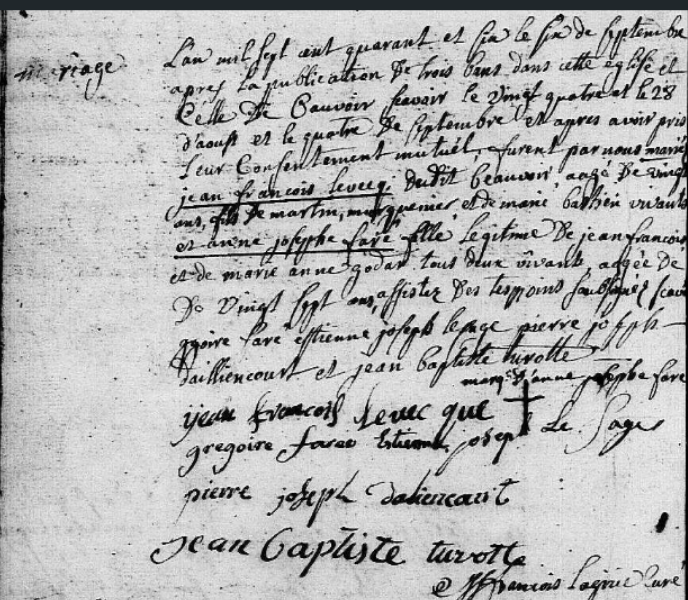 mariage
L'an mil sept cent quarant et six le six de septembre
apres la publication de trois bans dans cette eglise et
Celle de Bauvoir scavoir le vingt quatre et le 28
d'aoust et le quatre de septembre et apres avoir pris
Leur Consentement mutuel, furent par nous marié
jean francois levecq dudit beauvoir aagé de vingt
ans, fils de martin, et de marie bastien vivants
et anne josephe faré fille legitime de jean francois
et de marie anne godar tous deux vivants aagée de
De vingt sept ans, assistez des tesmoins
faré estienne joseph lesage pierre joseph
dailliencourt et jean baptiste turotte
marq d'anne josephe faré
jean francois levec que
gregoire faree Estienne josept Le Sage
pierre joseph daliencourt
jean baptiste turotte
francois curé